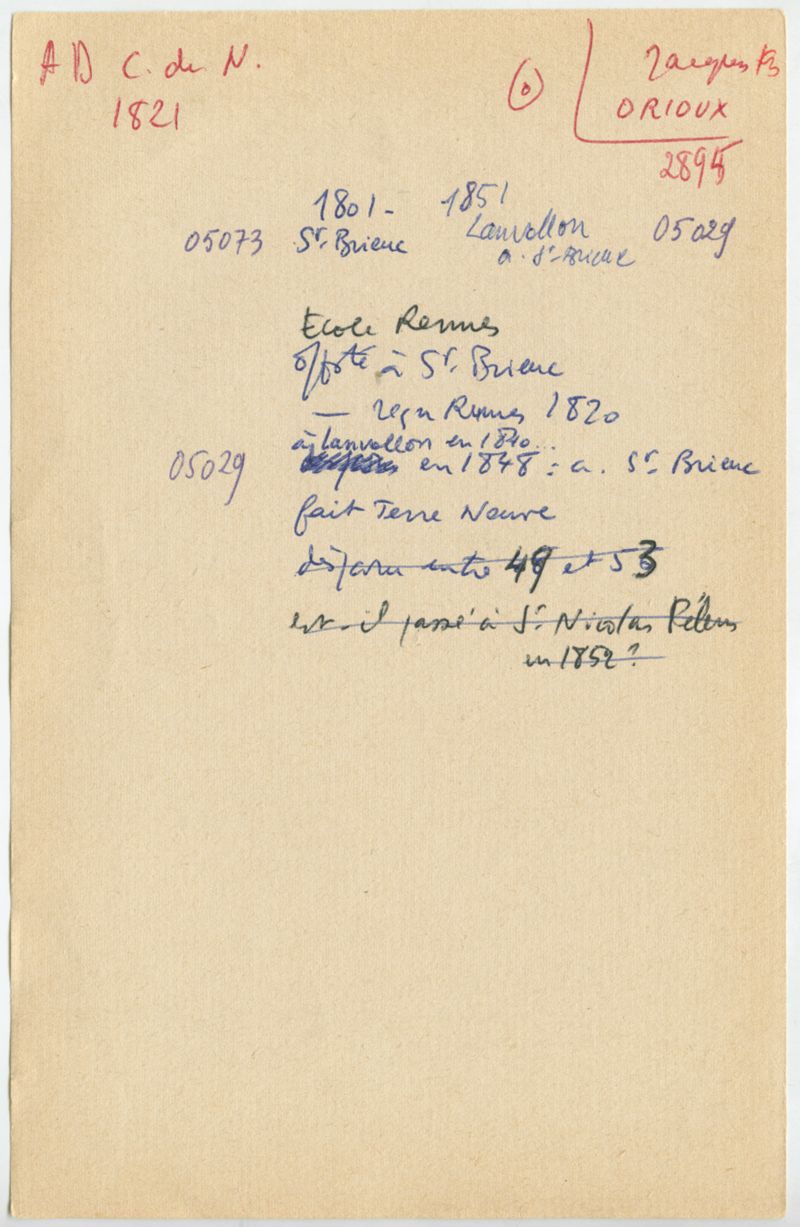 AD C. du N.
1821
Jacques
ORIOUX
2895
1801 - 1851
05073 St. Brieuc Lanvollon 05029
a. St-Brieuc
Ecole Rennes
à St. Brieuc
— reçu Rennes 1820
à Lanvollon en 1840...
05029 en 1848 : a. St Brieuc
fait Terre Neuve
disparu entre 49 et 53
est-il passé à St Nicolas Pélem
en 1852 ?